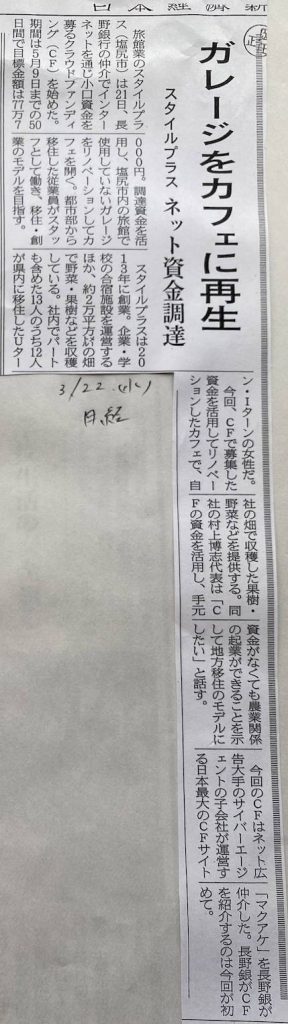 日本経済新
ガレージをカフェに再生
スタイルプラス ネット資金調達
旅館業のスタイルプラ
ス（塩尻市）は21日、長
野銀行の仲介でインター
ネットを通じ小口資金を
募るクラウドファンディ
ング（CF）を始めた。
期間は5月9日までの50
日間で目標金額は77万7
000円。調達資金を活
用し、塩尻市内の旅館で
使用していないガレージ
をリベーションしてカ
フェを開く。都市部から
移住した従業員がスタッ
フとして働き、移住・創
業のモデルを目指す。
スタイルプラスは20
13年に創業。企業・学
校の合宿施設を運営する
ほか、約2万平方㍍の畑
で野菜・果樹などを収穫
している。社内でパート
も含めた13人のうち12人
が県内に移住したUター
ン・Iターンの女性だ。
今回、CFで募集した
資金を活用してリノベー
ションしたカフェで、自
社の畑で収穫した果樹・
野菜などを提供する。同
社の村上博志代表は「C
Fの資金を活用し、手元
資金がなくても農業関係
の起業ができることを示
して地方移住のモデルに
したい」と話す。
今回のCFはネット広
告大手のサイバーエージ
ェントの子会社が運営す
る日本最大のCFサイト
「マクアケ」を長野銀が
仲介した。長野銀がCF
を紹介するのは今回が初
めて。
3/22（火）
日経